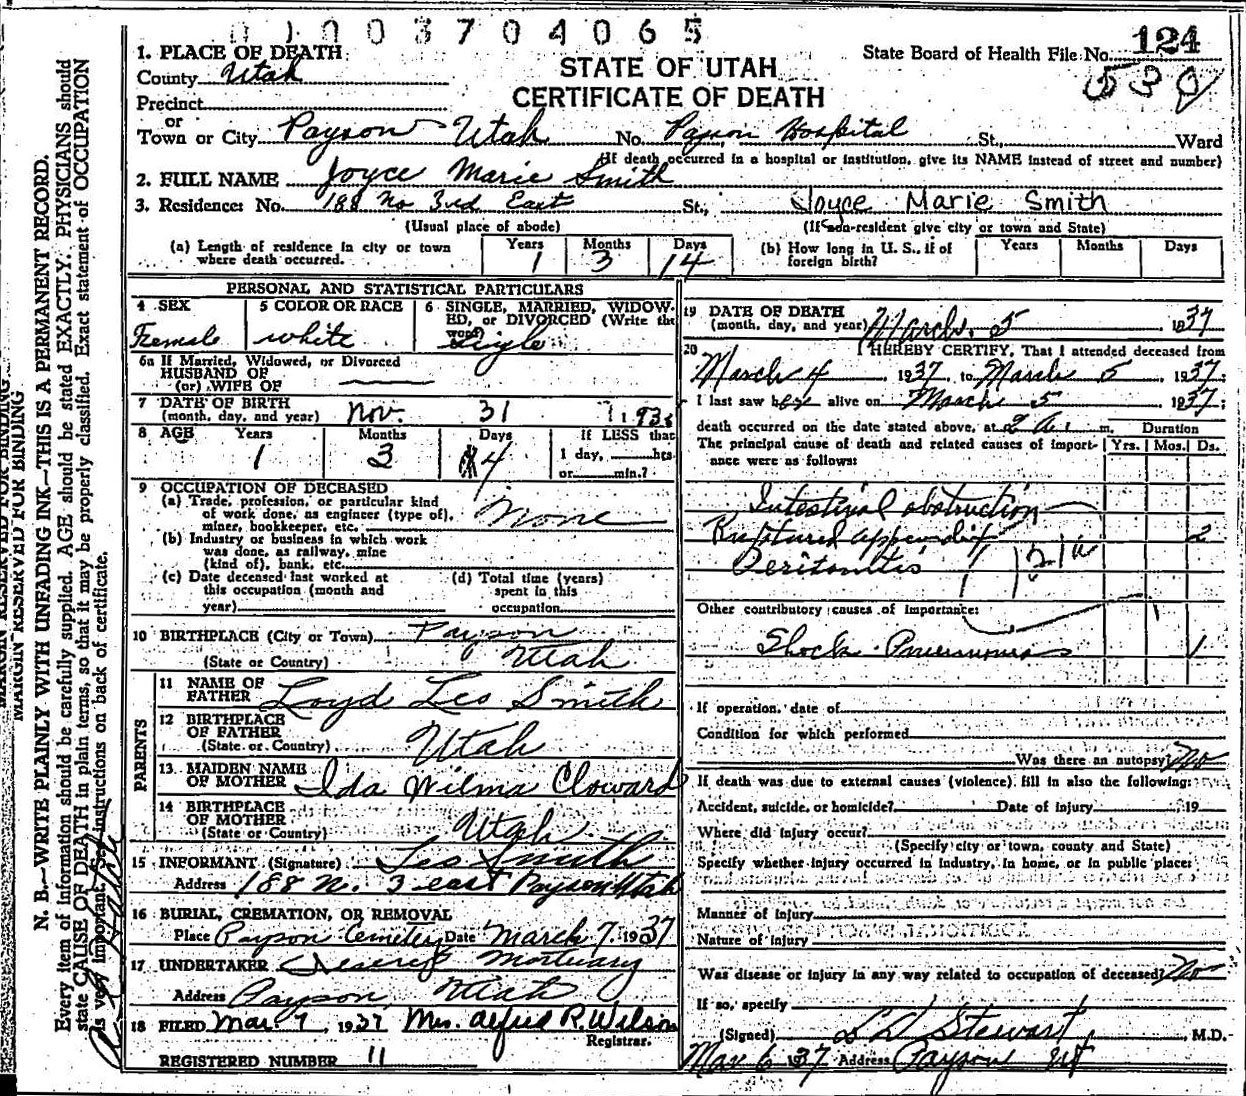 0 1 0 0 3 7 0 4 0 6 5
State Board of Health File No. 124
530
STATE OF UTAH
CERTIFICATE OF DEATH
1. PLACE OF DEATH
County Utah
Precinct
or
Town or City Payson Utah No. Payson Hospital St., Ward
(If death occurred in a hospital or institution, give its NAME instead of street and number)
2. FULL NAME Joyce Marie Smith
3. Residence: No. 188 No 3rd East St., Joyce Marie Smith
(Usual place of abode) (If non-resident give city or town and State)
(a) Length of residence in city or town where death occurred. Years 1 Months 3 Days 14
(b) How long in U. S., if of foreign birth? Years Months Days
PERSONAL AND STATISTICAL PARTICULARS
4 SEX Female
5 COLOR OR RACE white
6 SINGLE, MARRIED, WIDOWED, or DIVORCED (Write the word)
6a If Married, Widowed, or Divorced
HUSBAND OF
(or) WIFE OF
7 DATE OF BIRTH
(month, day, and year) Nov. 31 1935
8 AGE Years 1 Months 3 Days 4
If LESS than
1 day, hrs.
or min.?
9 OCCUPATION OF DECEASED
(a) Trade, profession, or particular kind
of work done, as engineer (type of),
miner, bookkeeper, etc. None
(b) Industry or business in which work
was done, as railway, mine
(kind of), bank, etc.
(c) Date deceased last worked at
this occupation (month and
year)
(d) Total time (years)
spent in this
occupation
10 BIRTHPLACE (City or Town) Payson
(State or Country) Utah
PARENTS
11 NAME OF FATHER Loyd Leo Smith
12 BIRTHPLACE OF FATHER
(State or Country) Utah
13 MAIDEN NAME OF MOTHER Ida Wilma Cloward
14 BIRTHPLACE OF MOTHER
(State or Country) Utah
15 INFORMANT (Signature) Leo Smith
Address 188 N. 3 east Payson Utah
16 BURIAL, CREMATION, OR REMOVAL
Place Payson Cemetery Date March 7, 1937
17 UNDERTAKER Deseret Mortuary
Address Payson Utah
18 FILED Mar. 7, 1937 Mrs. Alfred R. Wilson
Registrar.
REGISTERED NUMBER 11
19 DATE OF DEATH
(month, day, and year) March 5 1937
20 I HEREBY CERTIFY, That I attended deceased from
March 4, 1937, to March 5, 1937;
I last saw her alive on March 5 1937;
death occurred on the date stated above, at 2 A. m. Duration
The principal cause of death and related causes of importance were as follows: Yrs. Mos. Ds.
Intestinal obstruction
Ruptured appendix 2
Peritonitis
Other contributory causes of importance:
Shock Pneumonia 1
If operation, date of
Condition for which performed
Was there an autopsy? No
If death was due to external causes (violence) fill in also the following:
Accident, suicide, or homicide? Date of injury 19
Where did injury occur?
(Specify city or town, county and State)
Specify whether injury occurred in industry, in home, or in public place:
Manner of injury
Nature of injury
Was disease or injury in any way related to occupation of deceased? No
If so, specify
(Signed) L D Stewart, M.D.
Mar 6 1937 Address Payson Ut
MARGIN RESERVED FOR BINDING
MARGIN RESERVED FOR BINDING
N. B.—WRITE PLAINLY WITH UNFADING INK—THIS IS A PERMANENT RECORD.
Every item of information should be carefully supplied. AGE should be stated EXACTLY. PHYSICIANS should
state CAUSE OF DEATH in plain terms, so that it may be properly classified. Exact statement of OCCUPATION
is very important. See instructions on back of certificate.